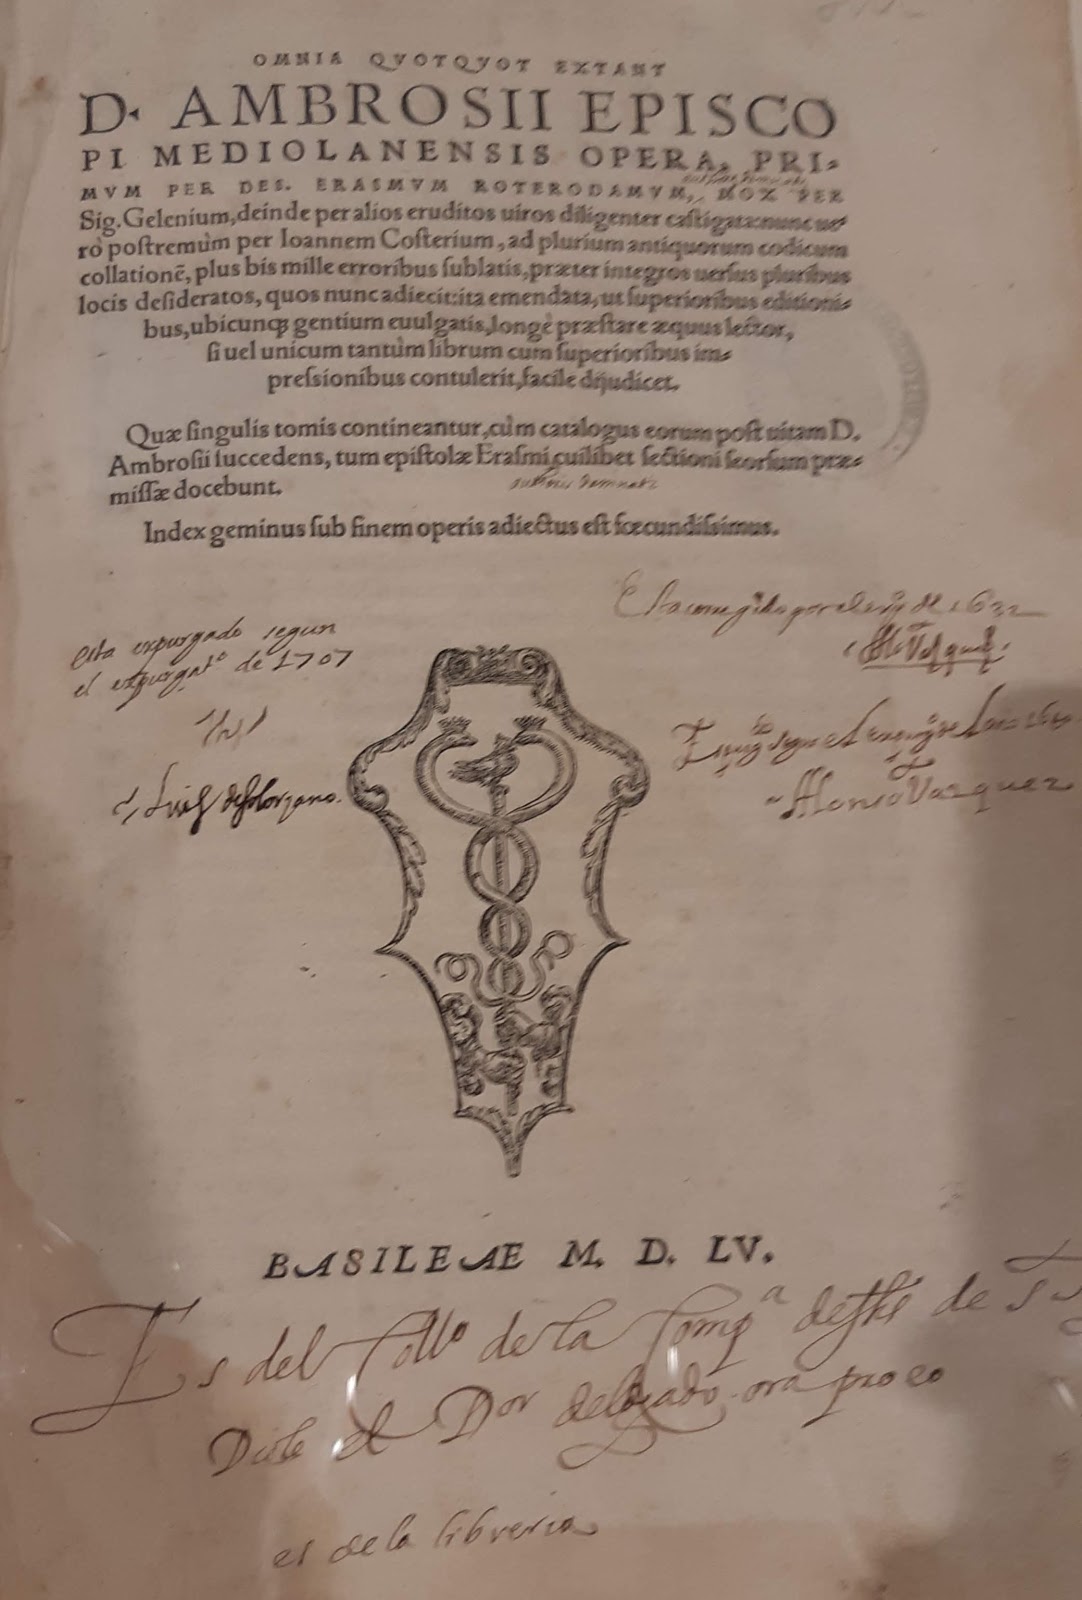 OMNIA QVOTQVOT EXTANT
D. AMBROSII EPISCO
PI MEDIOLANENSIS OPERA, PRI-
MVM PER DES. ERASMVM ROTERODAMVM, MOX PER
Sig. Gelenium, deinde per alios eruditos uiros diligenter castigata: nunc ue-
rò postremùm per Ioannem Costerium, ad plurium antiquorum codicum
collationē, plus bis mille erroribus sublatis, præter integros uersus pluribus
locis desideratos, quos nunc adiecit: ita emendata, ut superioribus editioni-
bus, ubicunq; gentium euulgatis, longè præstare æquus lector,
si uel unicum tantùm librum cum superioribus im-
pressionibus contulerit, facile dijudicet.
Quæ singulis tomis contineantur, cùm catalogus eorum post uitam D.
Ambrosii succedens, tum epistolæ Erasmi, cuilibet sectioni seorsum præ-
missæ docebunt.
authoris damnati
Index geminus sub finem operis adiectus est fœcundissimus.
Esta corregido por el exp.º de 1632
Esta expurgado segun
el expurgat.º de 1707
segun el expurg.º de
Luis de Solorzano.
Alonso Vazquez
BASILEAE M. D. LV.
Es del Coll.º de la Comp.ª de Jhs de
Diole el D.or delgado. ora pro eo
es de la libreria